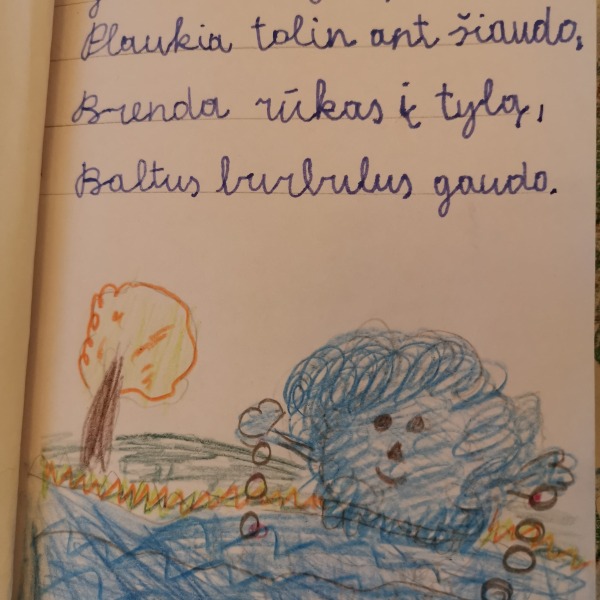 Plaukia tolin ant šiaudo,
Brenda rūkas į tylą,
Baltus burbulus gaudo.